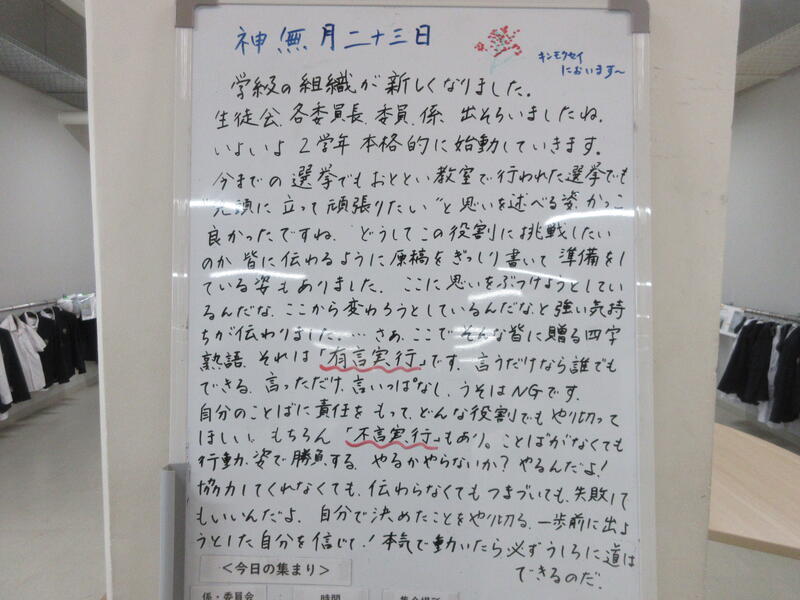 神無月二十三日
キンモクセイ
においます~
学級の組織が新しくなりました。
生徒会、各委員長、委員、係、出そろいましたね。
いよいよ2学年本格的に始動していきます。
今までの選挙でもおととい教室で行われた選挙でも
"先頭に立って頑張りたい"と思いを述べる姿、かっこ
良かったですね。どうしてこの役割に挑戦したい
のか皆に伝わるように原稿をぎっしり書いて準備をし
ている姿もありました。ここに思いをぶつけようとしてい
るんだな、ここから変わろうとしているんだな、と強い気持
ちが伝わりました。…さあ、ここでそんな皆に贈る四字
熟語、それは「有言実行」です。言うだけなら誰でも
できる。言っただけ、言いっぱなし、うそはNGです。
自分のことばに責任をもって、どんな役割でもやり切って
ほしい。もちろん「不言実行」もあり。ことばがなくても
行動、姿で勝負する。やるかやらないか?やるんだよ!
協力してくれなくても、伝わらなくてもつまづいても、失敗して
もいいんだよ。自分で決めたことをやり切る、一歩前に出よ
うとした自分を信じて!本気で動いたら必ずうしろに道は
できるのだ。
<今日の集まり>
係・委員会 時間 集合場所